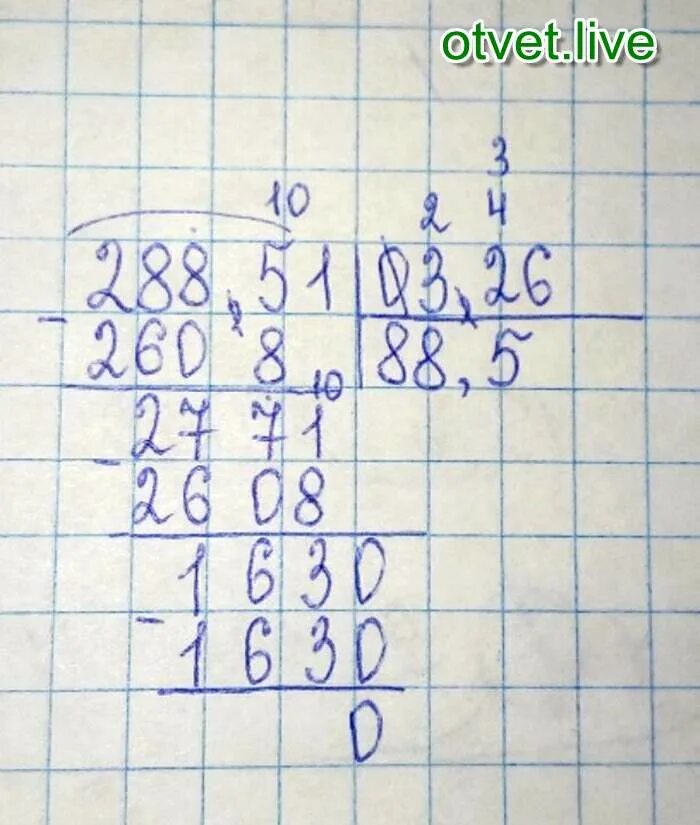 otvet.live
3
10 2 4
288,51 03,26
- 260 8 88,5
10
2771
- 2608
1630
- 1630
0